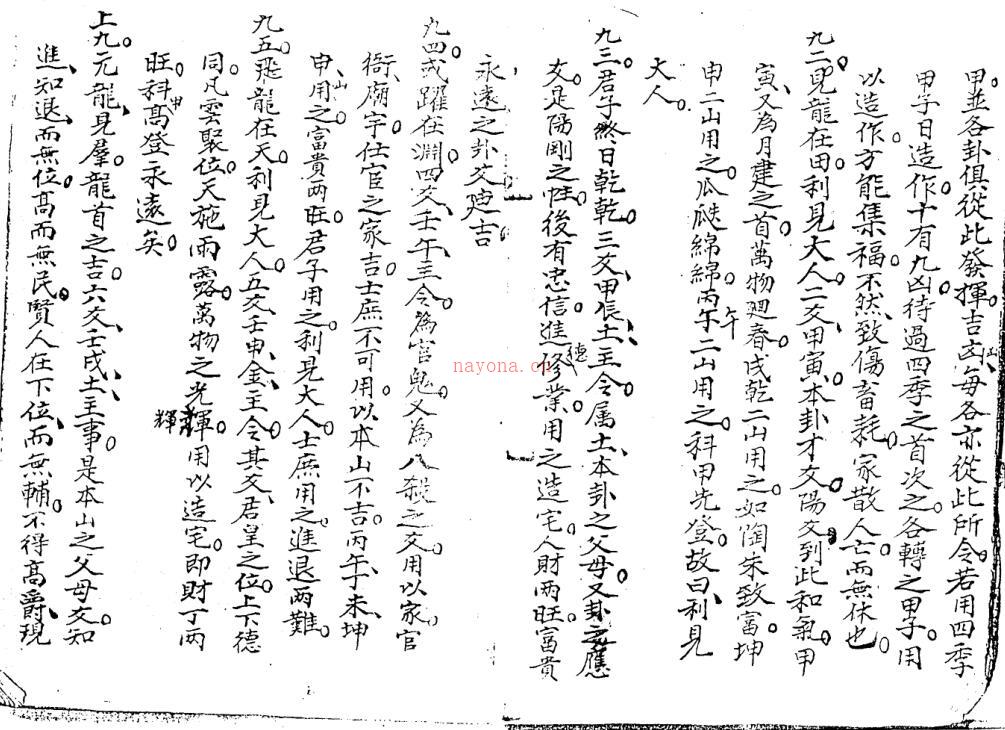 甲並各卦俱從此發揮吉凶每各亦從此所令若用四季
甲子日造作十有九凶待過四季之首次之各轉之甲子用
以造作方能集福不然致傷畜耗家散人亡而無休也
九二見龍在田利見大人二爻甲寅本卦才爻陽爻到此和氣甲
寅又為月建之首萬物廻春戌乾二山用之如陶朱致富坤
申二山用之瓜瓞綿綿丙午二山用之科甲先登故曰利見
大人
九三君子終日乾乾三爻甲辰土主令属土本卦之父母又卦之應
爻是陽剛之性後有忠信進德修業用之造宅人財兩旺富貴
永遠之卦爻迪吉
九四或躍在淵四爻壬午主令為官鬼又為八殺之爻用以家官
衙廟宇仕宦之家吉士庶不可用以本山不吉丙午丁未坤
申山用之富貴两旺君子用之利見大人士庶用之進退两難
九五飛龍在天利見大人五爻壬申金主令其爻居皇之位上下德
同凡雲聚位天施雨露萬物之光輝用以造宅即財丁两
輝
旺科甲高登永遠矣
上九元龍見羣龍首之吉六爻壬戌土主事是本山之父母爻知
進知退而無位高而無民賢人在下位而無輔不得高爵現
nayona.cn